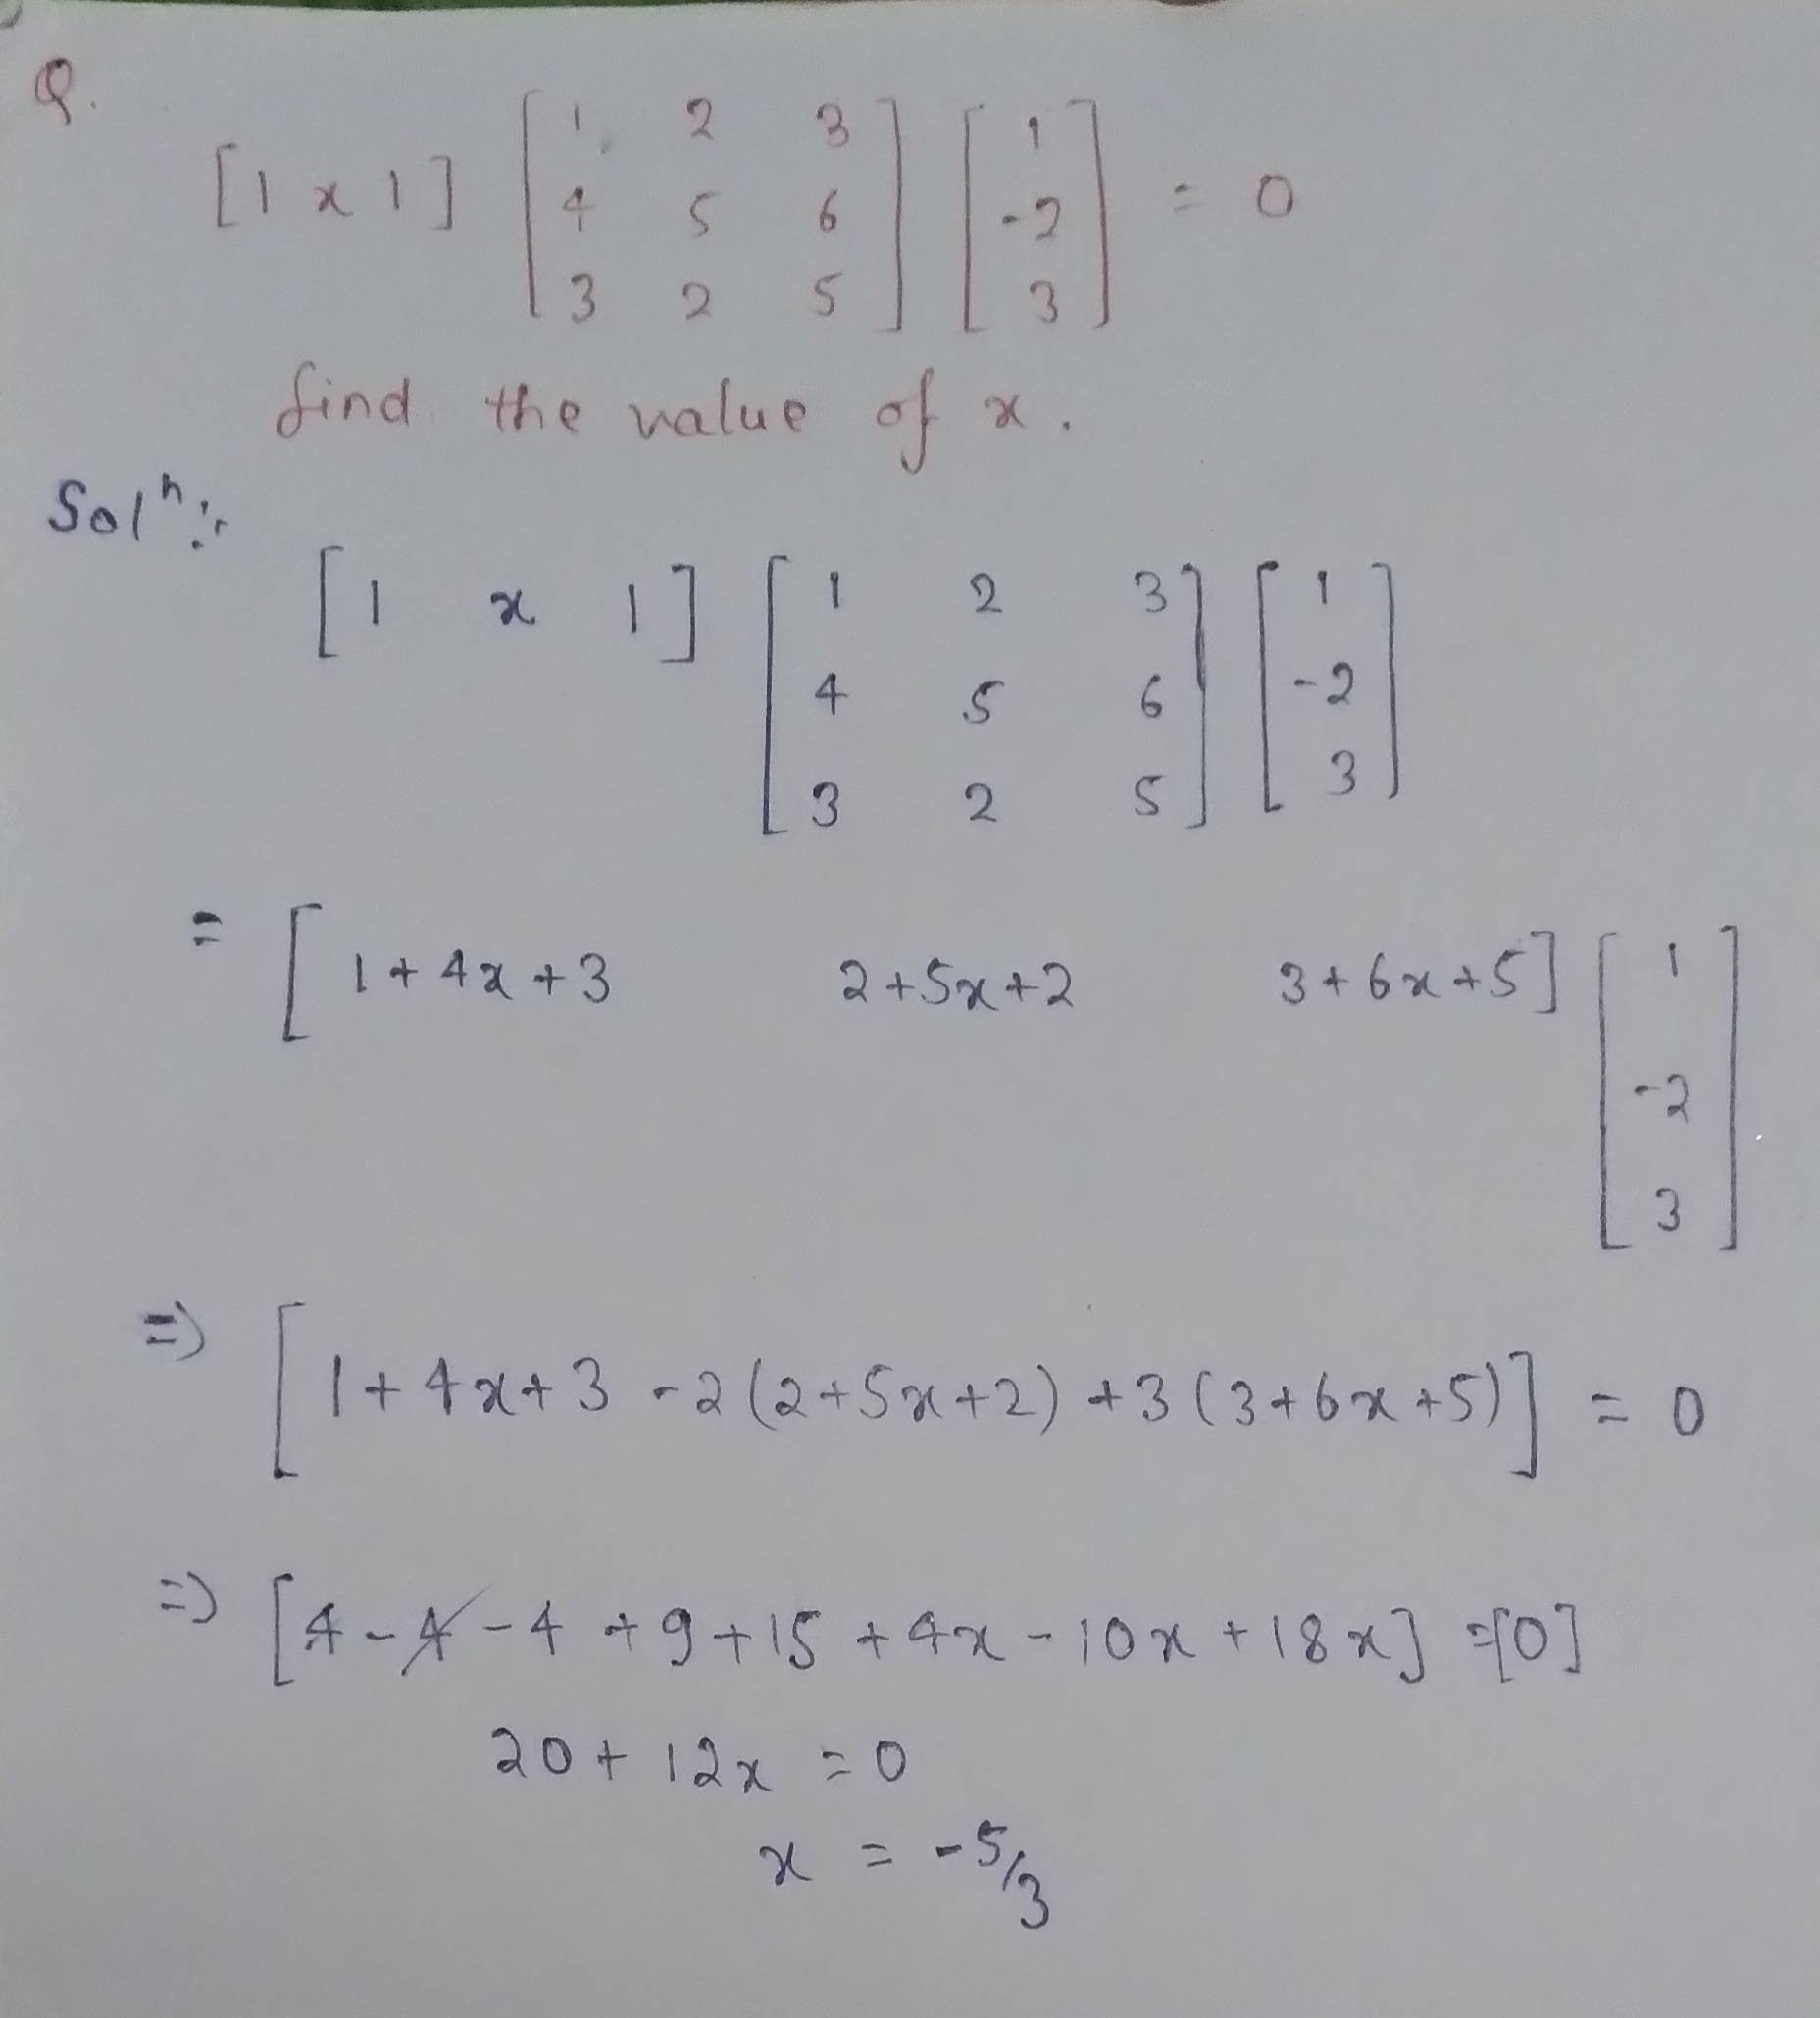 Q.
[1 x 1] [1 2 3 [1
4 5 6 -2 = 0
3 2 5] 3]
find the value of x.
Solⁿ:
[1 x 1] [1 2 3] [1
4 5 6 -2
3 2 5] 3]
= [1+4x+3 2+5x+2 3+6x+5] [1
-2
3]
=> [1+4x+3-2(2+5x+2)+3(3+6x+5)] = 0
=> [4-4-4+9+15+4x-10x+18x] = [0]
20+12x = 0
x = -5/3